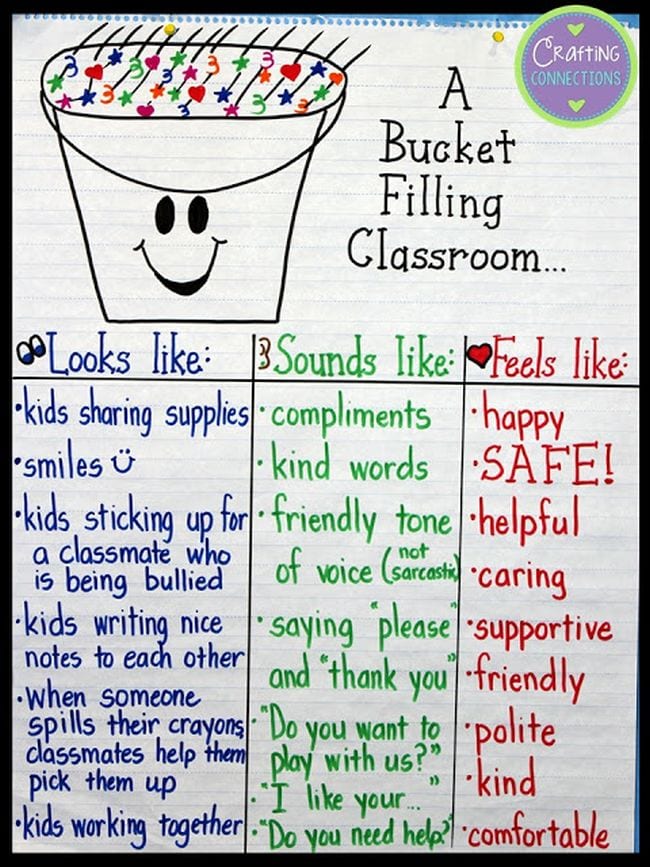 Crafting
CONNECTIONS
A
Bucket
Filling
Classroom...
Looks like:
•kids sharing supplies
•smiles
•kids sticking up for
a classmate who
is being bullied
•kids writing nice
notes to each other
•when someone
spills their crayons,
classmates help them
pick them up
•kids working together
Sounds like:
•compliments
•kind words
•friendly tone
of voice (not
sarcastic)
•saying "please"
and "thank you"
•"Do you want to
play with us?"
•"I like your..."
•"Do you need help?"
Feels like:
•happy
•SAFE!
•helpful
•caring
•supportive
•friendly
•polite
•kind
•comfortable